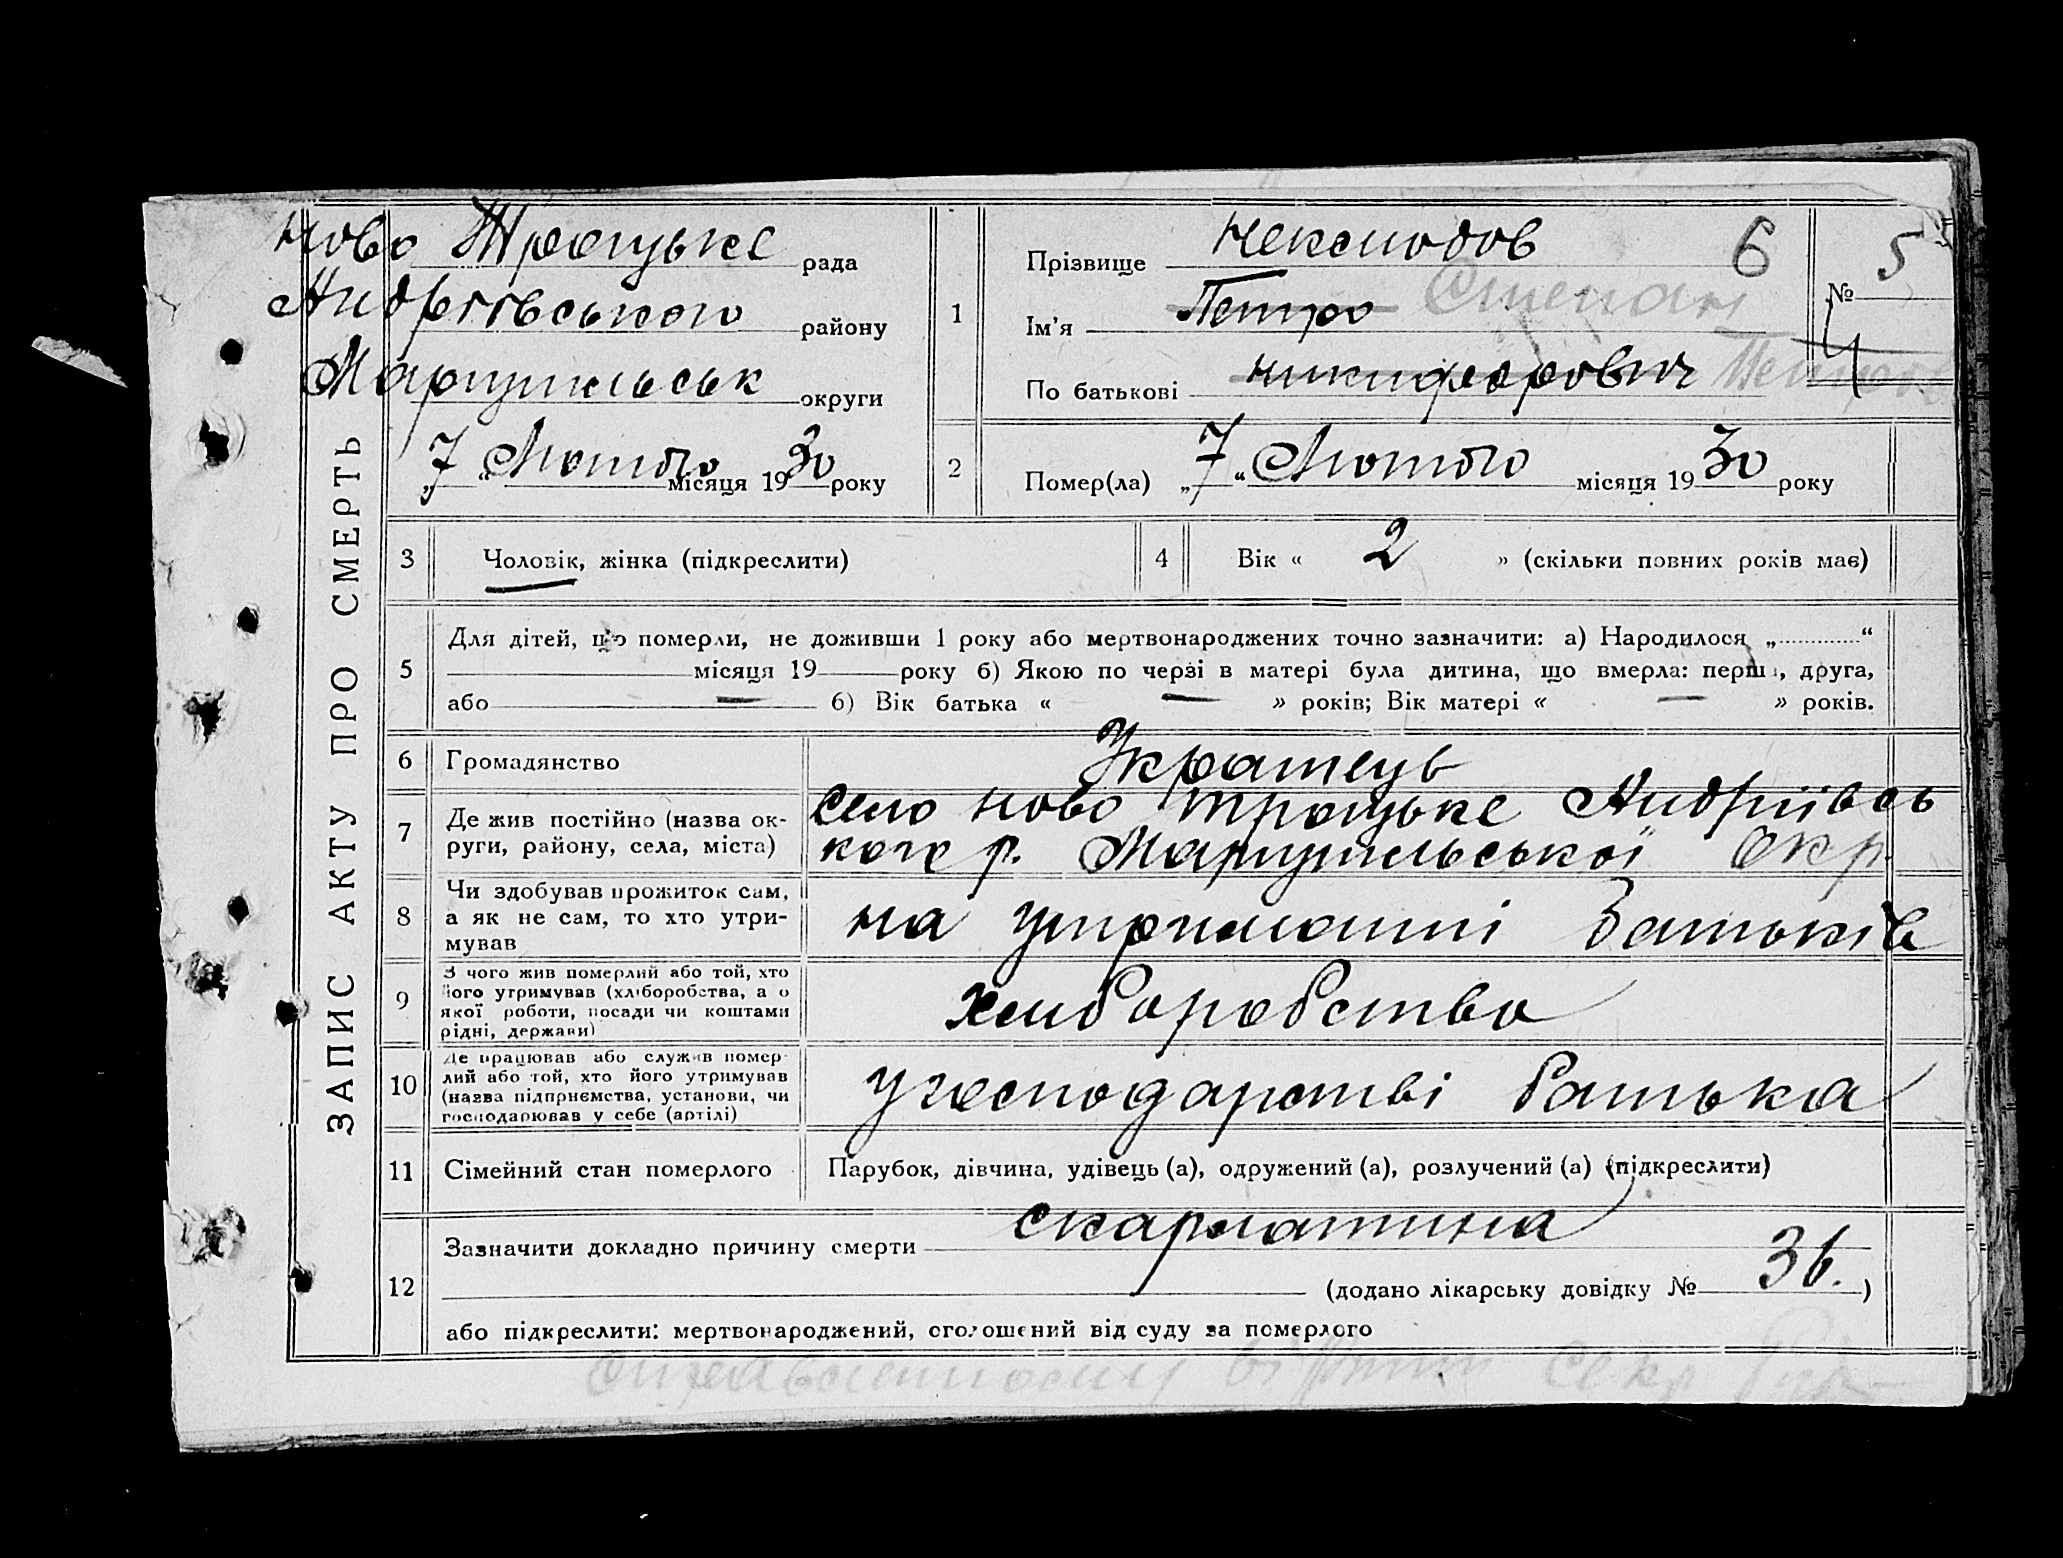 ЗАПИС АКТУ ПРО СМЕРТЬ
Ново Троцьке рада
Андріївського району
Маріупильськ округи
„7“ Лютого місяця 1930 року
1
Прізвище 6
Ім'я Петро Степан
По батькові Никифорович
№ 5
4
2
Помер(ла) „7“ Лютого місяця 1930 року
3 Чоловік, жінка (підкреслити)
4 Вік « 2 » (скільки повних років має)
5
Для дітей, що померли, не доживши 1 року або мертвонароджених точно зазначити: а) Народилося „ “
місяця 19 року б) Якою по черзі в матері була дитина, що вмерла: перша, друга,
або — б) Вік батька « — » років; Вік матері « — » років.
6 Громадянство Украпець
7 Де жив постійно (назва ок-
руги, району, села, міста)
село Ново Троцьке Андріівсь
кого р. Маріупильської Окр
8 Чи здобував прожиток сам,
а як не сам, то хто утри-
мував
на утриманні Батьків
9 З чого жив померлий або той, хто
його утримував (хліборобства, а о
якої роботи, посади чи коштами
рідні, держави)
Хлиборобство
10 Де працював або служив помер-
лий або той, хто його утримував
(назва підприємства, установи, чи
господарював у себе (артілі)
у господарстві батька
11 Сімейний стан померлого Парубок, дівчина, удівець (а), одружений (а), розлучений (а) (підкреслити)
12
Зазначити докладно причину смерти скарлатина
(додано лікарську довідку № 36. )
або підкреслити: мертвонароджений, оголошений від суду за померлого